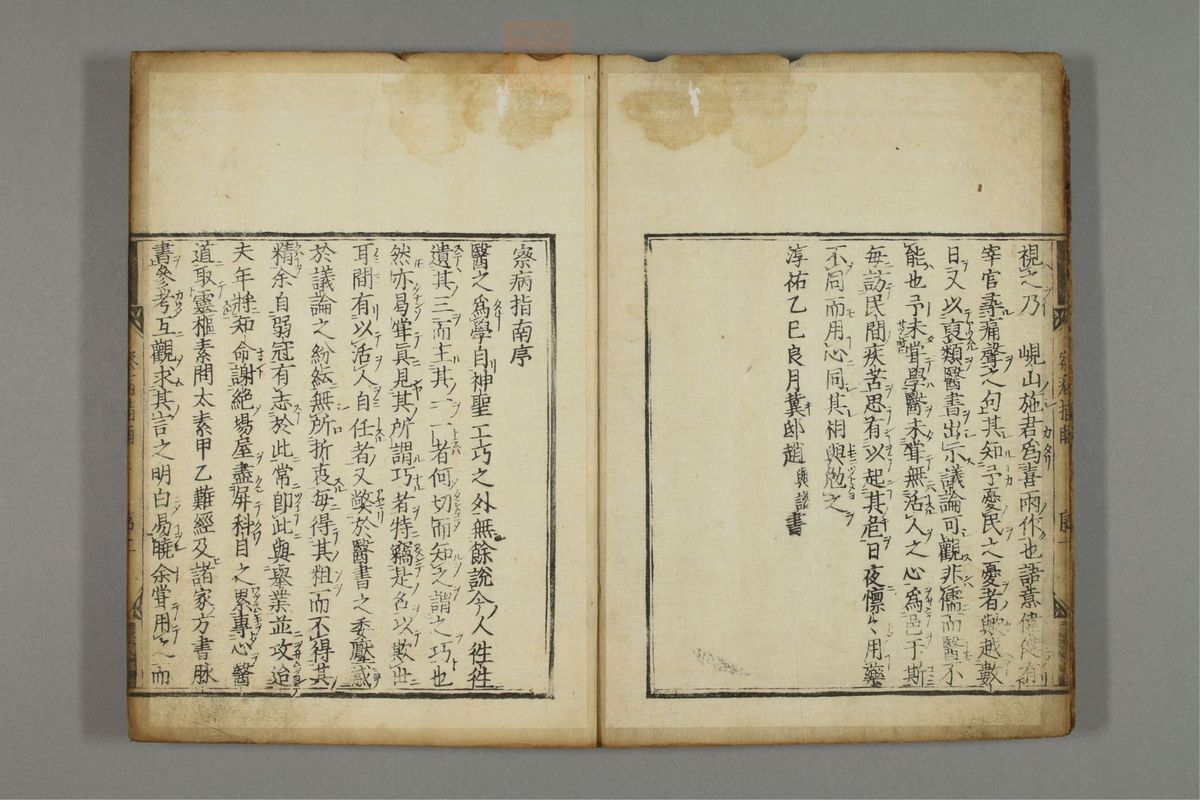 視之乃 峴山施君爲喜雨作也語意偉
宰官壽痛聲之句其知予憂民之憂者歟越數
日又以裒類醫書出示議論可觀非儒而醫不
能也予未甞學醫未甞無活人之心爲邑于斯
每訪民間疾苦思有以起其危日夜懍〻用藥
不同而用心同其相與勉之
淳祐乙巳良月冀邸趙與諲書
察病指南序
醫之爲學自神聖工巧之外無餘說今人徃徃
遺其三而主其一一者何切而知之謂之巧也
然亦曷甞眞見其所謂巧者特竊是名以欺世
耳間有以活人自任者又弊於醫書之委壓惑
於議論之紛紜無所折衷每得其粗而不得其
精余自弱冠有志於此常卽此與舉業並攻迨
夫年將知命謝絶場屋盡屏科目之累專心醫
道取靈樞素問太素甲乙難經及諸家方書脉
書參考互觀求其言之明白易曉余甞用之而